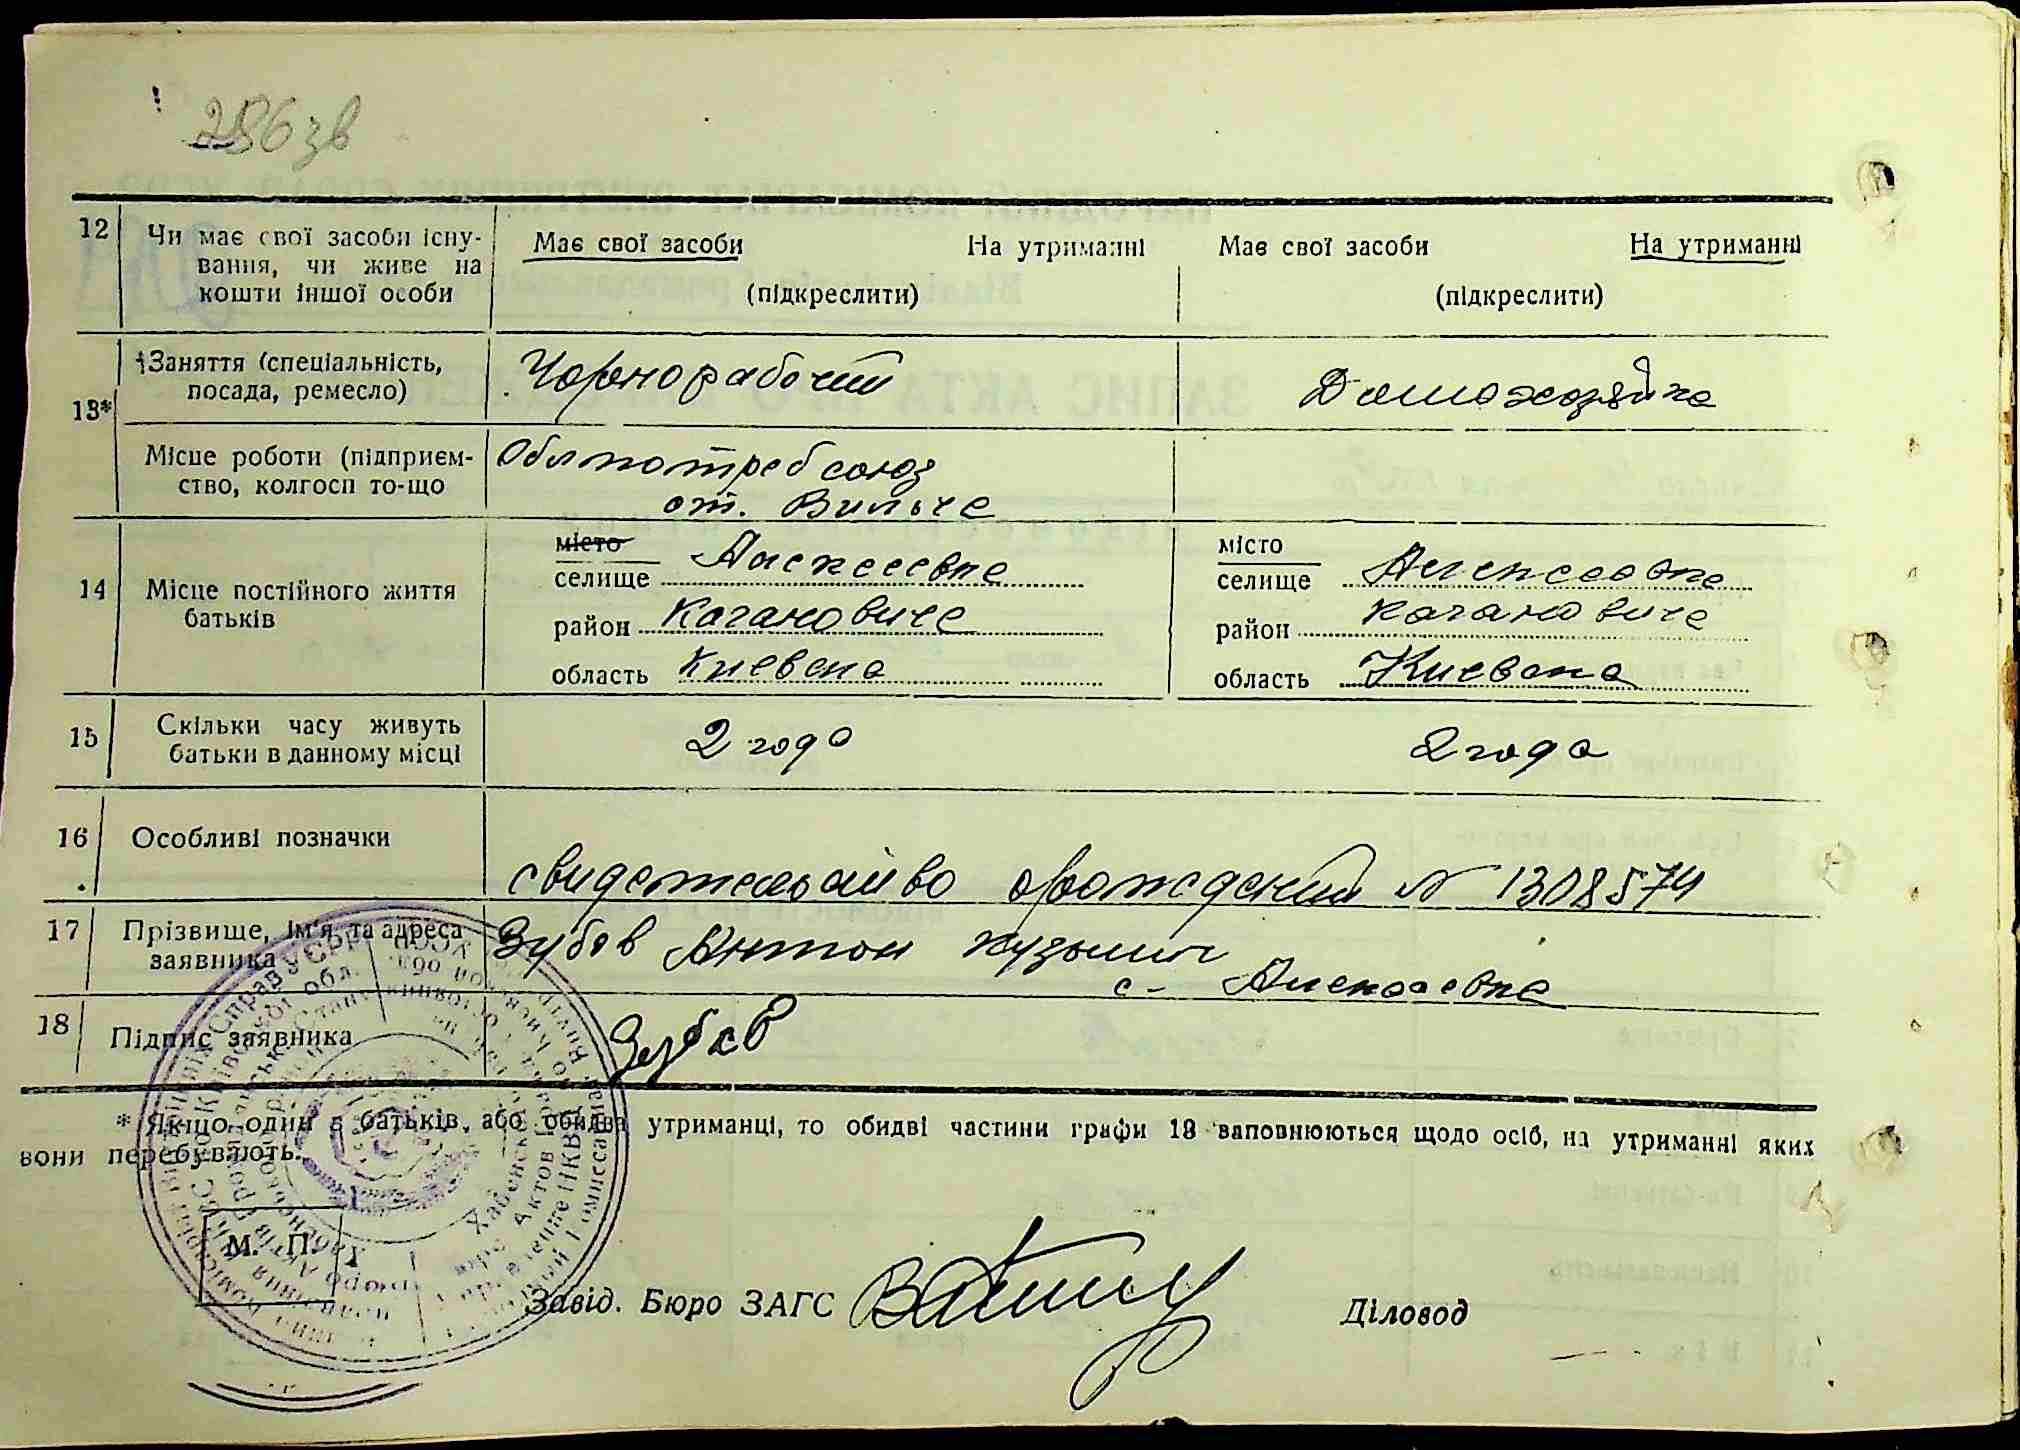 286 зв
12 Чи має свої засоби існу-
вання, чи живе на
кошти іншої особи
Має свої засоби На утриманні
(підкреслити)
Має свої засоби На утриманні
(підкреслити)
13* Заняття (спеціальність,
посада, ремесло)
Чорнорабочий
Домохозяйка
Місце роботи (підприєм-
ство, колгосп то-що
Облпотребсоюз
ст. Вильче
14 Місце постійного життя
батьків
місто
селище Алексеевка
район Каганович
область Киевска
місто
селище Алексеевка
район Каганович
область Киевска
15 Скільки часу живуть
батьки в данному місці
2 года
2 года
16 Особливі позначки
свидетельство о рождении № 1308574
17 Прізвище, ім'я та адреса
заявника
Зубов Антон Кузьмич
с. Алексеевка
18 Підпис заявника
Зубов
* Якщо один з батьків, або обидва утриманці, то обидві частини графи 13 заповнюються щодо осіб, на утриманні яких
вони перебувають.
М. П.
Завід. Бюро ЗАГС
Діловод